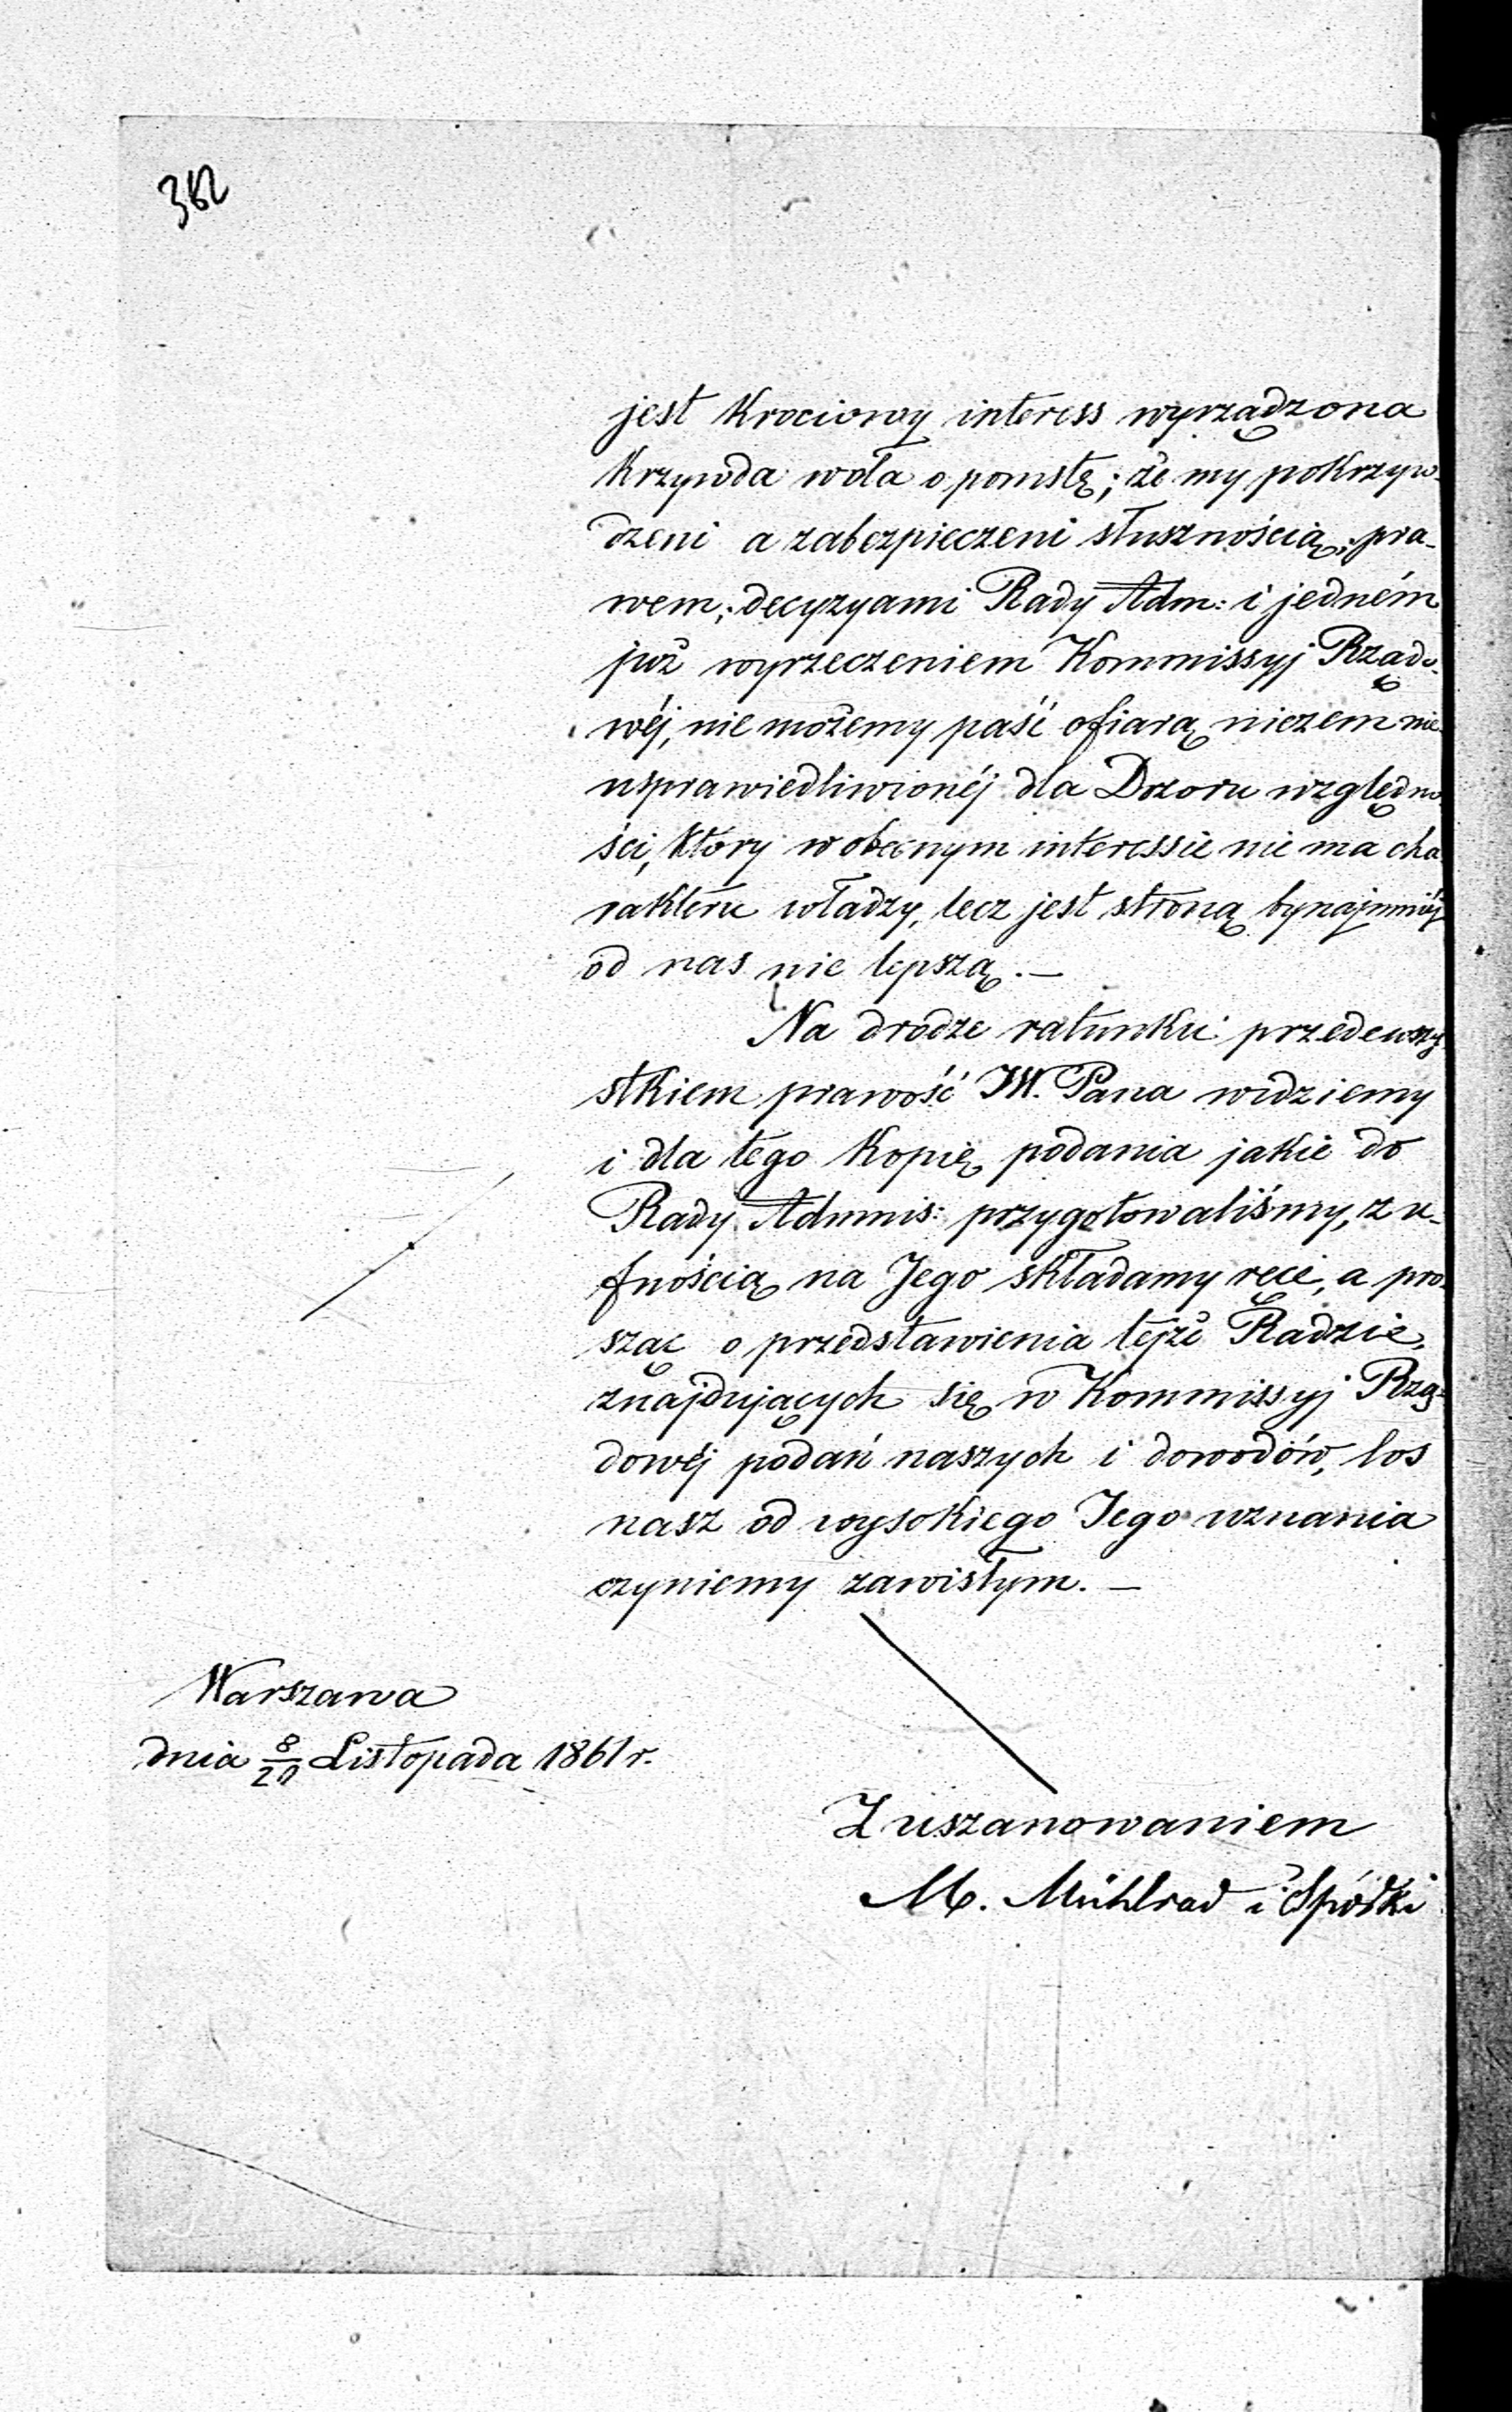 362
jest Krociowy interess wyrządzona
Krzywda woła o pomstę; że my pokrzyw-
dzeni a zabezpieczeni słusznością, pra-
wem, decyzyami Rady Adm: i jedném
już wyrzeczeniem Kommissyj Rządo-
wéj, nie możemy paść ofiarą niczem nie
usprawiedliwionéj dla Dozoru względno-
ści, który w obecnym interessie nie ma cha-
rakteru władzy, lecz jest stroną bynajmniéj
od nas nie lepszą. —
Na drodze ratunku przedewszy-
stkiem prawość JW. Pana widziemy
i dla tego Kopię podania jakie do
Rady Adminis: przygotowaliśmy, z u-
fnością na Jego składamy ręce, a pro-
sząc o przedstawienia tejże Radzie,
znajdujących się w Kommissyj Rzą-
dowéj podań naszych i dowodów, los
nasz od wysokiego Jego uznania
czyniemy zawisłym. —
Warszawa
dnia 8/20 Listopada 1861 r.
Z uszanowaniem
M. Mühlrad i Spółki